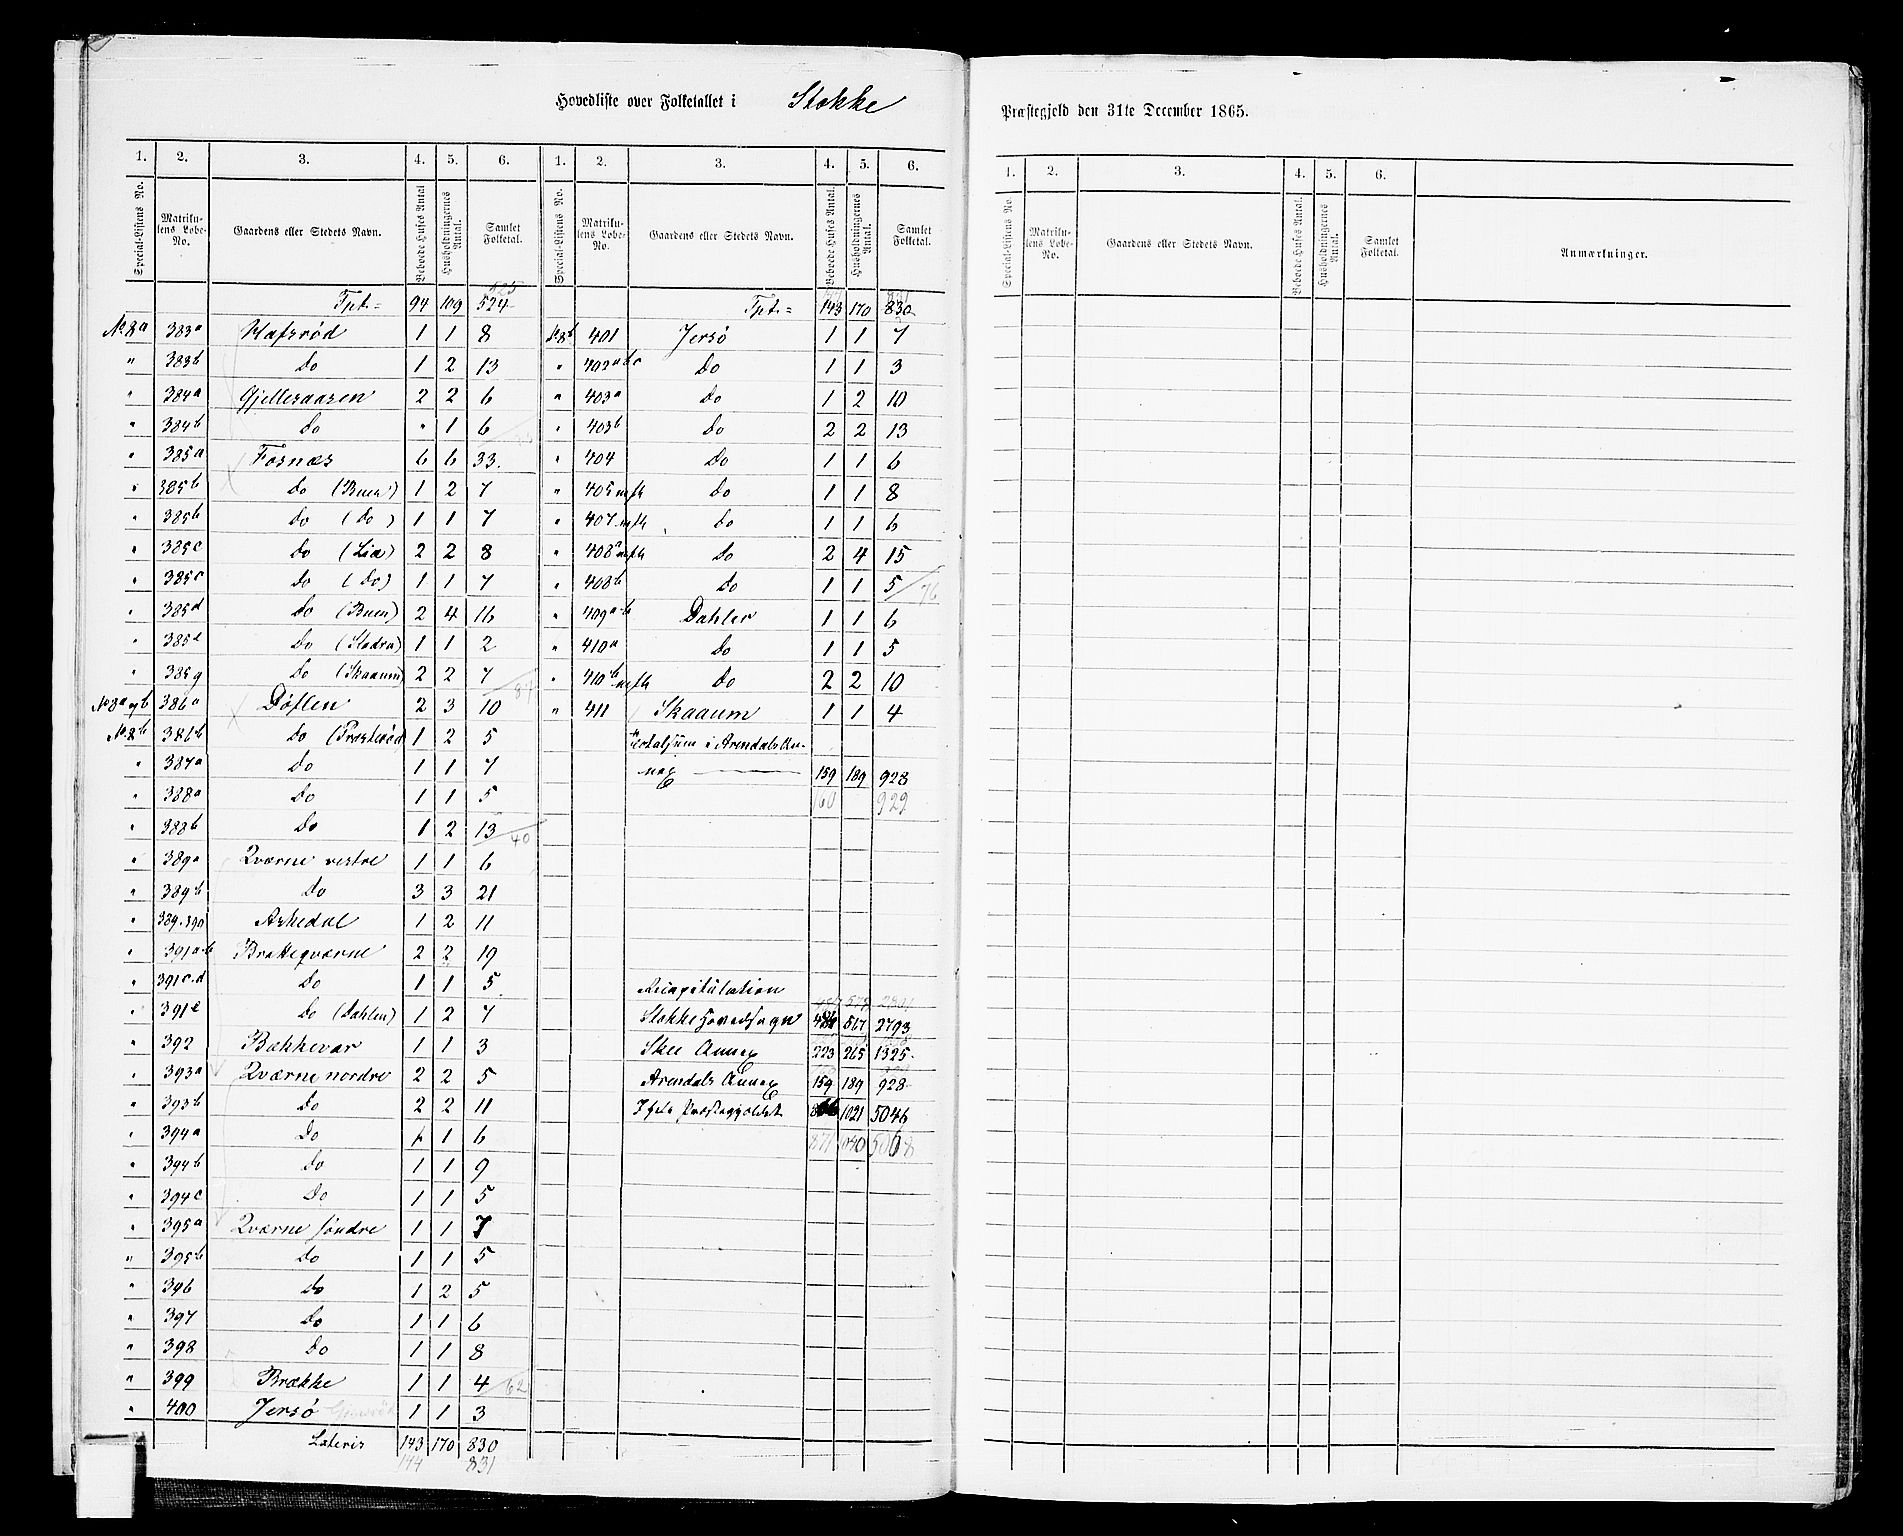 Hovedliste over Folketallet i Stokke
Præstegjeld den 31te December 1865.
1. 2. 3. 4. 5. 6. 1. 2. 3. 4. 5. 6.
Special-Listens No. Matrikulens Løbe-No. Gaardens eller Stedets Navn. Beboede Huses Antal Husholdningernes Antal. Samlet Folketal. Special-Listens No. Matrikulens Løbe-No. Gaardens eller Stedets Navn. Beboede Huses Antal. Husholdningernes Antal. Samlet Folketal.
525
Tpt. = 94 109 524
No 8a 383a Hafsrød 1 1 8
" 383b Do 1 2 13
" 384a Gjellesaasen 2 2 6
" 384b Do " 1 6
" 385a Fosnæs 6 6 33.
" 385b Do (Buen) 1 2 7
" 385b Do (Do) 1 1 7
" 385c Do (Lia) 2 2 8
" 385c Do (Do) 1 1 7
" 385d Do (Buen) 2 4 16
" 385e Do (Slodra) 1 1 2
" 385g Do (Skaaum) 2 2 7
87
No 8a og b 386a Døflen 2 3 10
No 8b 386b Do 1 2 5
" 387a Do 1 1 7
" 388a Do 1 1 5
" 388b Do 1 2 13
40
" 389a Qværne vestre 1 1 6
" 389b Do 3 3 21
" 389.390 Askedal 1 2 11
" 391a-b Bratteqværne 2 2 19
" 391c.d Do 1 1 5
" 391e Do (Dahlen) 1 2 7
" 392 Bækkevar 1 1 3
" 393a Qværne nordre 2 2 5
" 393b Do 2 2 11
" 394a Do 1 1 6
" 394b Do 1 1 9
" 394c Do 1 1 5
" 395a Qværne søndre 1 1 7
" 395b Do 1 1 5
" 396 Do 1 2 5
" 397 Do 1 1 6
" 398 Do 1 1 8
" 399 Brække 1 1 4
62
" 400 Jersø 1 1 3
Lateris 143 170 830
144 831
831
Tpt. = 143 170 830
No 8b 401 Jersø 1 1 7
" 402abc Do 1 1 3
" 403a Do 1 2 10
" 403b Do 2 2 13
" 404 Do 1 1 6
" 405 mfl Do 1 1 8
" 407 mfl Do 1 1 6
" 408a mfl Do 2 4 15
" 408b Do 1 1 5
76
" 409a-b Dahler 1 1 6
" 410a Do 1 1 5
" 410b mfl Do 2 2 10
" 411 Skaaum 1 1 4
Totalsum i Arendals An-
nex 159 189 928
160 929
Recapitulation
Stokke Hovedsogn 567 2793
Skee Annex 223 265 1325
Arendals Annex 159 189 928
1021 5046
871 1040 5068
1. 2. 3. 4. 5. 6.
Special-Listens No. Matrikulens Løbe-No. Gaardens eller Stedets Navn. Beboede Huses Antal. Husholdningernes Antal. Samlet Folketal. Anmærkninger.